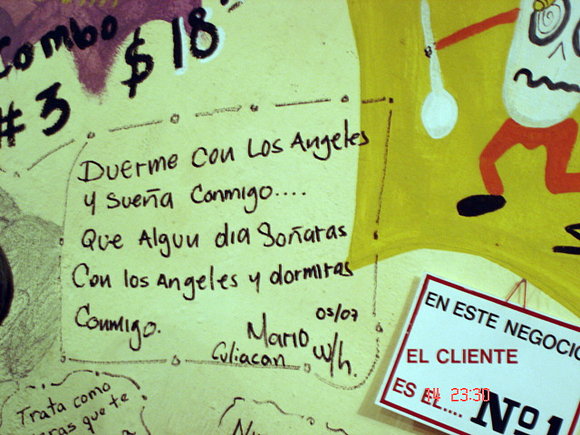 Combo
#3 $18
Duerme con Los Angeles
y sueña Conmigo....
Que Algun dia Soñaras
Con los Angeles y dormiras
Conmigo.
05/07
Mario w/h.
Culiacan
EN ESTE NEGOCIO
EL CLIENTE
ES EL.... Nº1
14 23:30
Trata como
que te